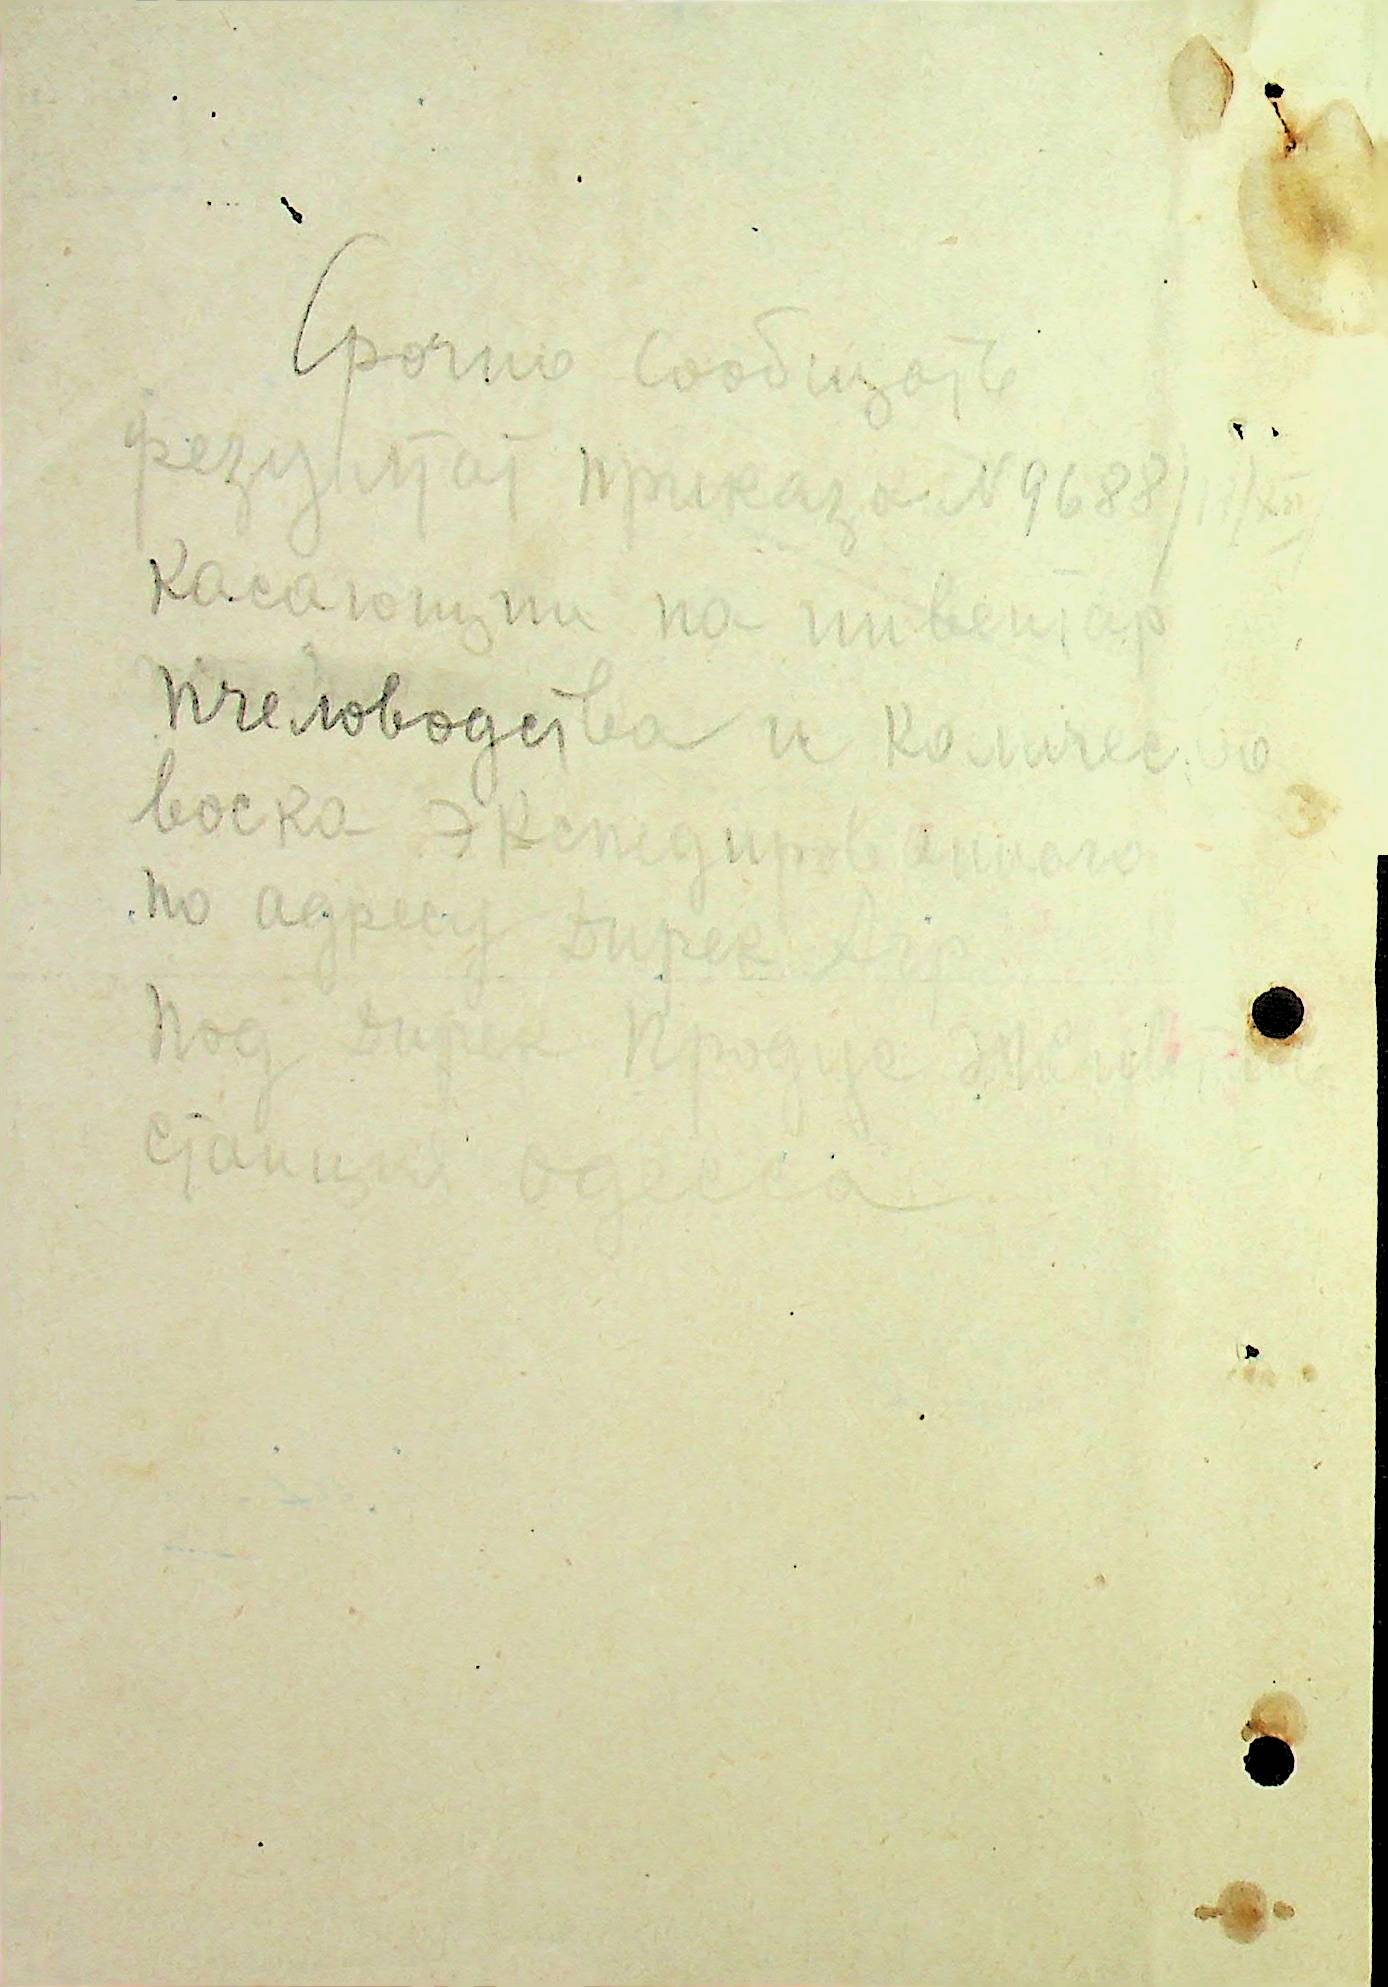 Срочно сообщать
результат приказа N 9688/11/XII
касающии на инвентар
пчеловодства и количество
воска экспедированного
по адресу Дирек Агр
под Дирек Продус
станция Одесса